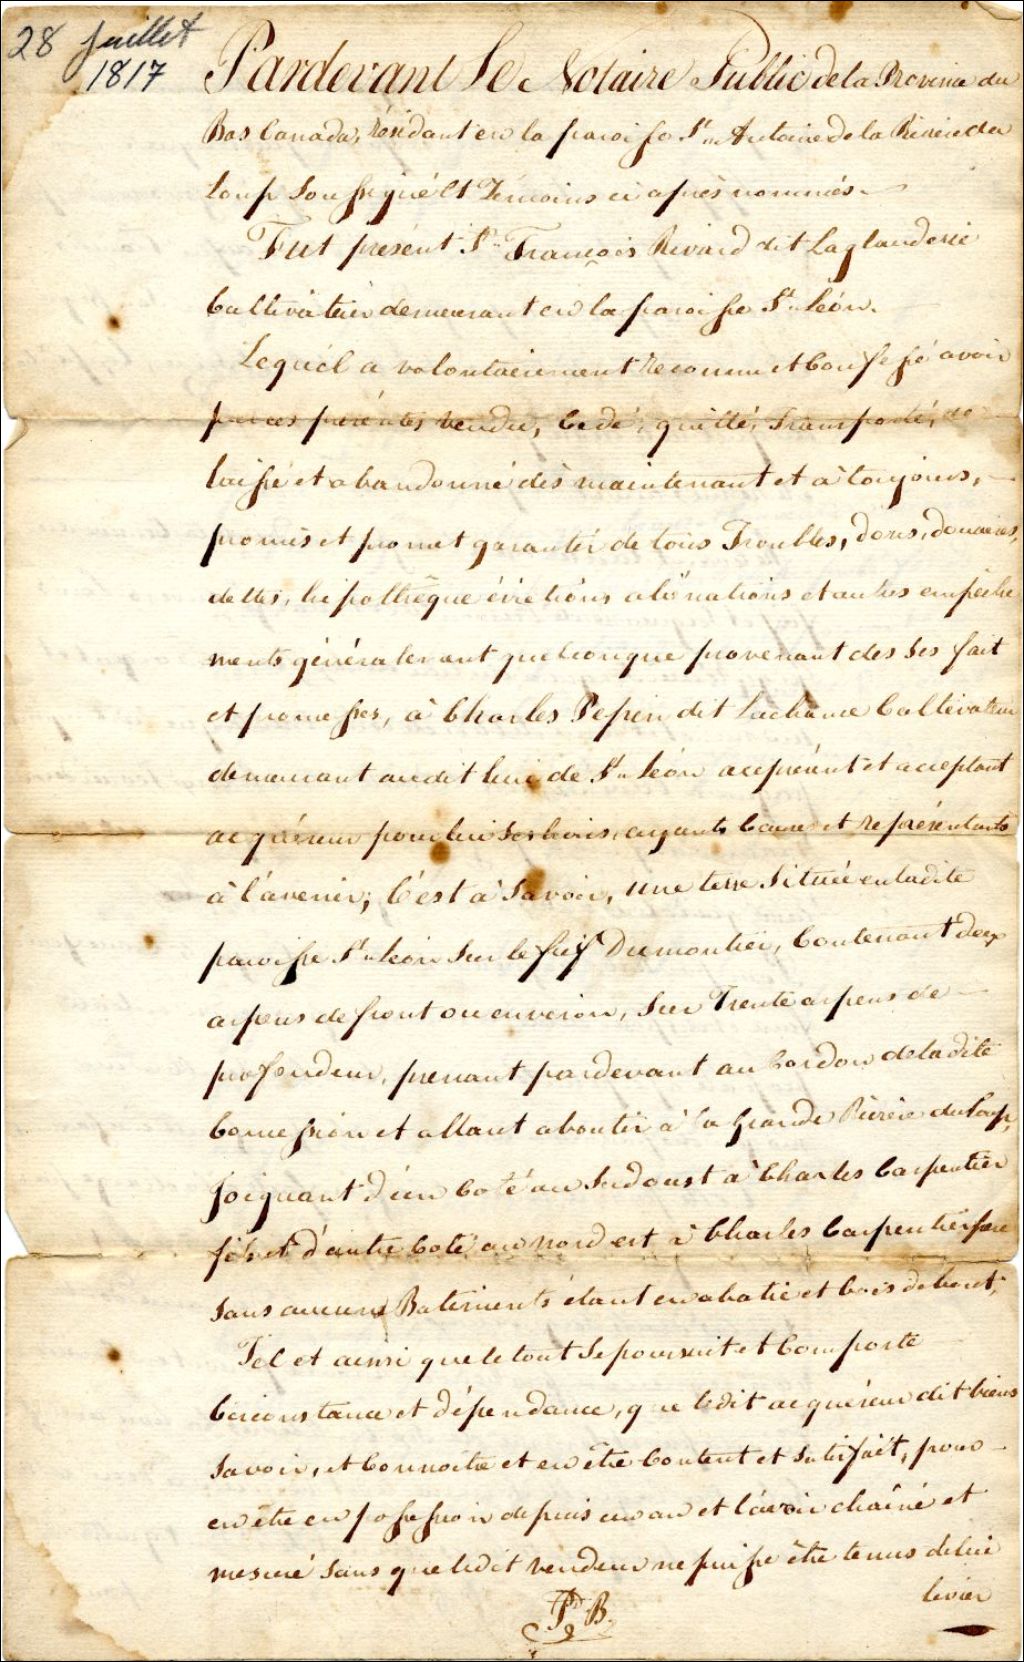 28 Juillet
1817
Pardevant Le Notaire Public de la Province du
Bas Canada, résidant en la paroisse St. Antoine de la Rivière du
Loup Soussigné Et Témoins ci après nommés
Fut présent Sr. François Rivard dit Laglanderie
Cultivateur demeurant en la paroisse St. Léon.
Lequel a volontairement reconnu et Confessé avoir
par ces présentes vendu, Cedé, quitté, Transporté, de
laissé et abandonné dès maintenant et à toujours,
promis et promet garantir de tous Troubles, dons, douaires,
dettes, hipothêque évictions aliénations et autres empêche
ments généralement quelconque provenant des Ses fait
et promesses, à Charles Pepin dit Lachance Cultivateur
demeurant audit lieu de St. Léon acepréent et acceptant
acquéreur pour lui Ses hoirs, ayants Cause et représentants
à l'avenir; C'est à Savoir, une terre Située en ladite
paroisse St. Léon Sur le fief Dumontier, Contenant deux
arpens de front ou environ, Sur Trente arpens de
profondeur, prenant pardevant au Cordon de la dite
Concession et allant aboutir à la grande Rivière du Loup,
Joignant d'un Coté au Sudouest à Charles Carpentier
fils et d'autre Coté au nord est à Charles Carpentier père
Sans aucune Batiments étant en abatie et bois debout,
Tel et ainsi que le tout Se poursuit et Comporte
Circonstance et dépendance, que ledit acquéreur dit bien
Savoir, et Connoitre et en être Content et Satisfait, pour
en être en possession depuis un an et l'avoir chainé et
mesuré Sans que ledit vendeur ne puisse être tenus de lui
livrer
P. B.